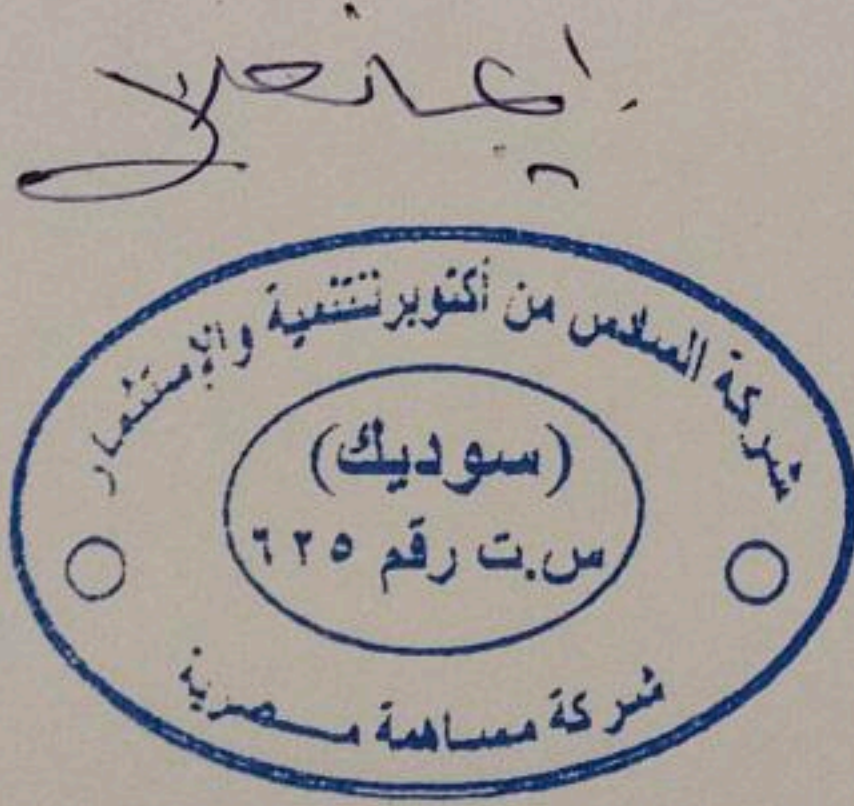 شركة السادس من أكتوبر للتنمية والإستثمار
(سوديك)
س.ت رقم ٦٢٥
شركة مساهمة مصرية